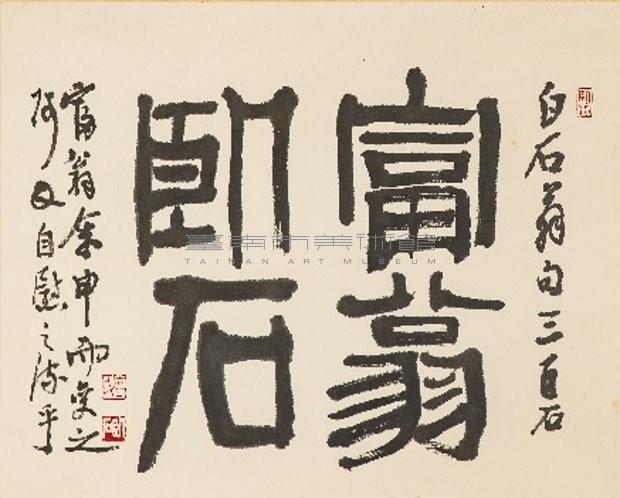 白石翁句三百石
富翁
臥石
富翁余申而受之
阿Q自慰之流乎
臺南市美術館
TAINAN ART MUSEUM